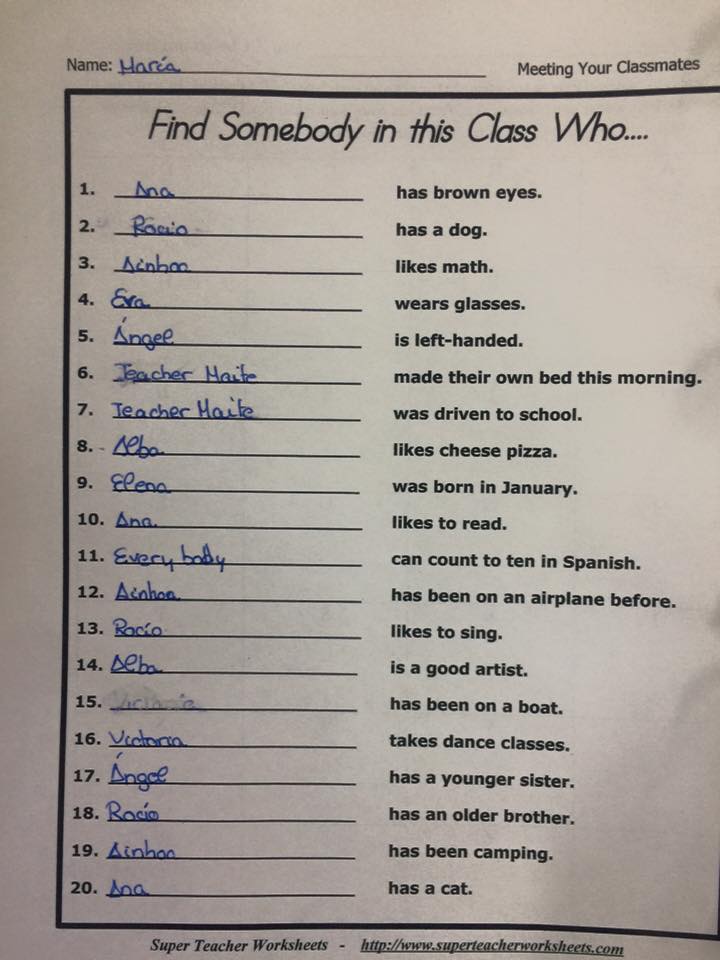 Name: María Meeting Your Classmates
Find Somebody in this Class Who....
1. Ana has brown eyes.
2. Rocío has a dog.
3. Ainhoa likes math.
4. Eva wears glasses.
5. Ángel is left-handed.
6. Teacher Maite made their own bed this morning.
7. Teacher Maite was driven to school.
8. Alba likes cheese pizza.
9. Elena was born in January.
10. Ana likes to read.
11. Every body can count to ten in Spanish.
12. Ainhoa has been on an airplane before.
13. Rocío likes to sing.
14. Alba is a good artist.
15. has been on a boat.
16. Victoria takes dance classes.
17. Ángel has a younger sister.
18. Rocío has an older brother.
19. Ainhoa has been camping.
20. Ana has a cat.
Super Teacher Worksheets - http://www.superteacherworksheets.com